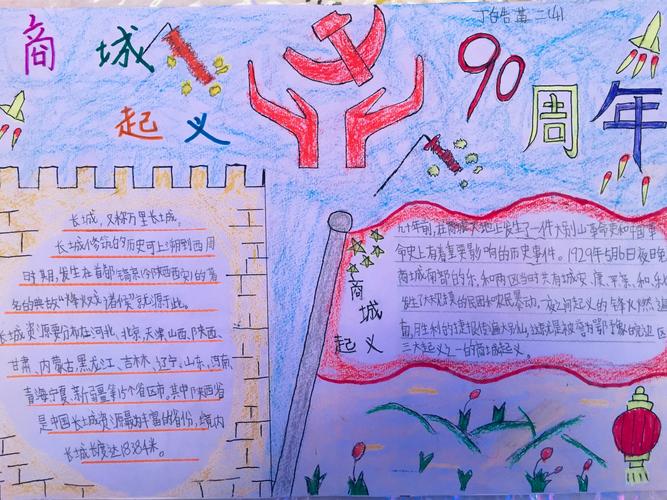 商城
起义
90周年
二(4)
长城,又称万里长城。
长城修筑的历史可上溯到西周
时期,发生在首都镐京(今陕西西安)的著
名的典故"烽火戏诸侯"就源于此。
长城资源要分布在河北、北京、天津、山西、陕西、
甘肃、内蒙古、黑龙江、吉林、辽宁、山东、河南、
青海、宁夏、新疆等15个省区市,其中陕西省
是中国长城资源最为丰富的省份,境内
长城长度达1838.4米。
商城
起义
九十年前,在商城大地上发生了一件大别山革命史和中国革
命史上有着重要影响的历史事件。1929年5月6日夜日
商城南部的乐、和两区当时共有城安
发了大规模的民团和农民暴动,一夜之间起义的烽火燃
胜利的捷报传遍大别山,这就是被称鄂豫皖边区
三大起义之一的商城起义。